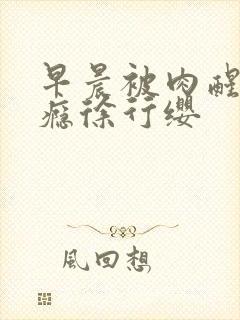 早晨被肉醒
瘾徐行缨
風回想